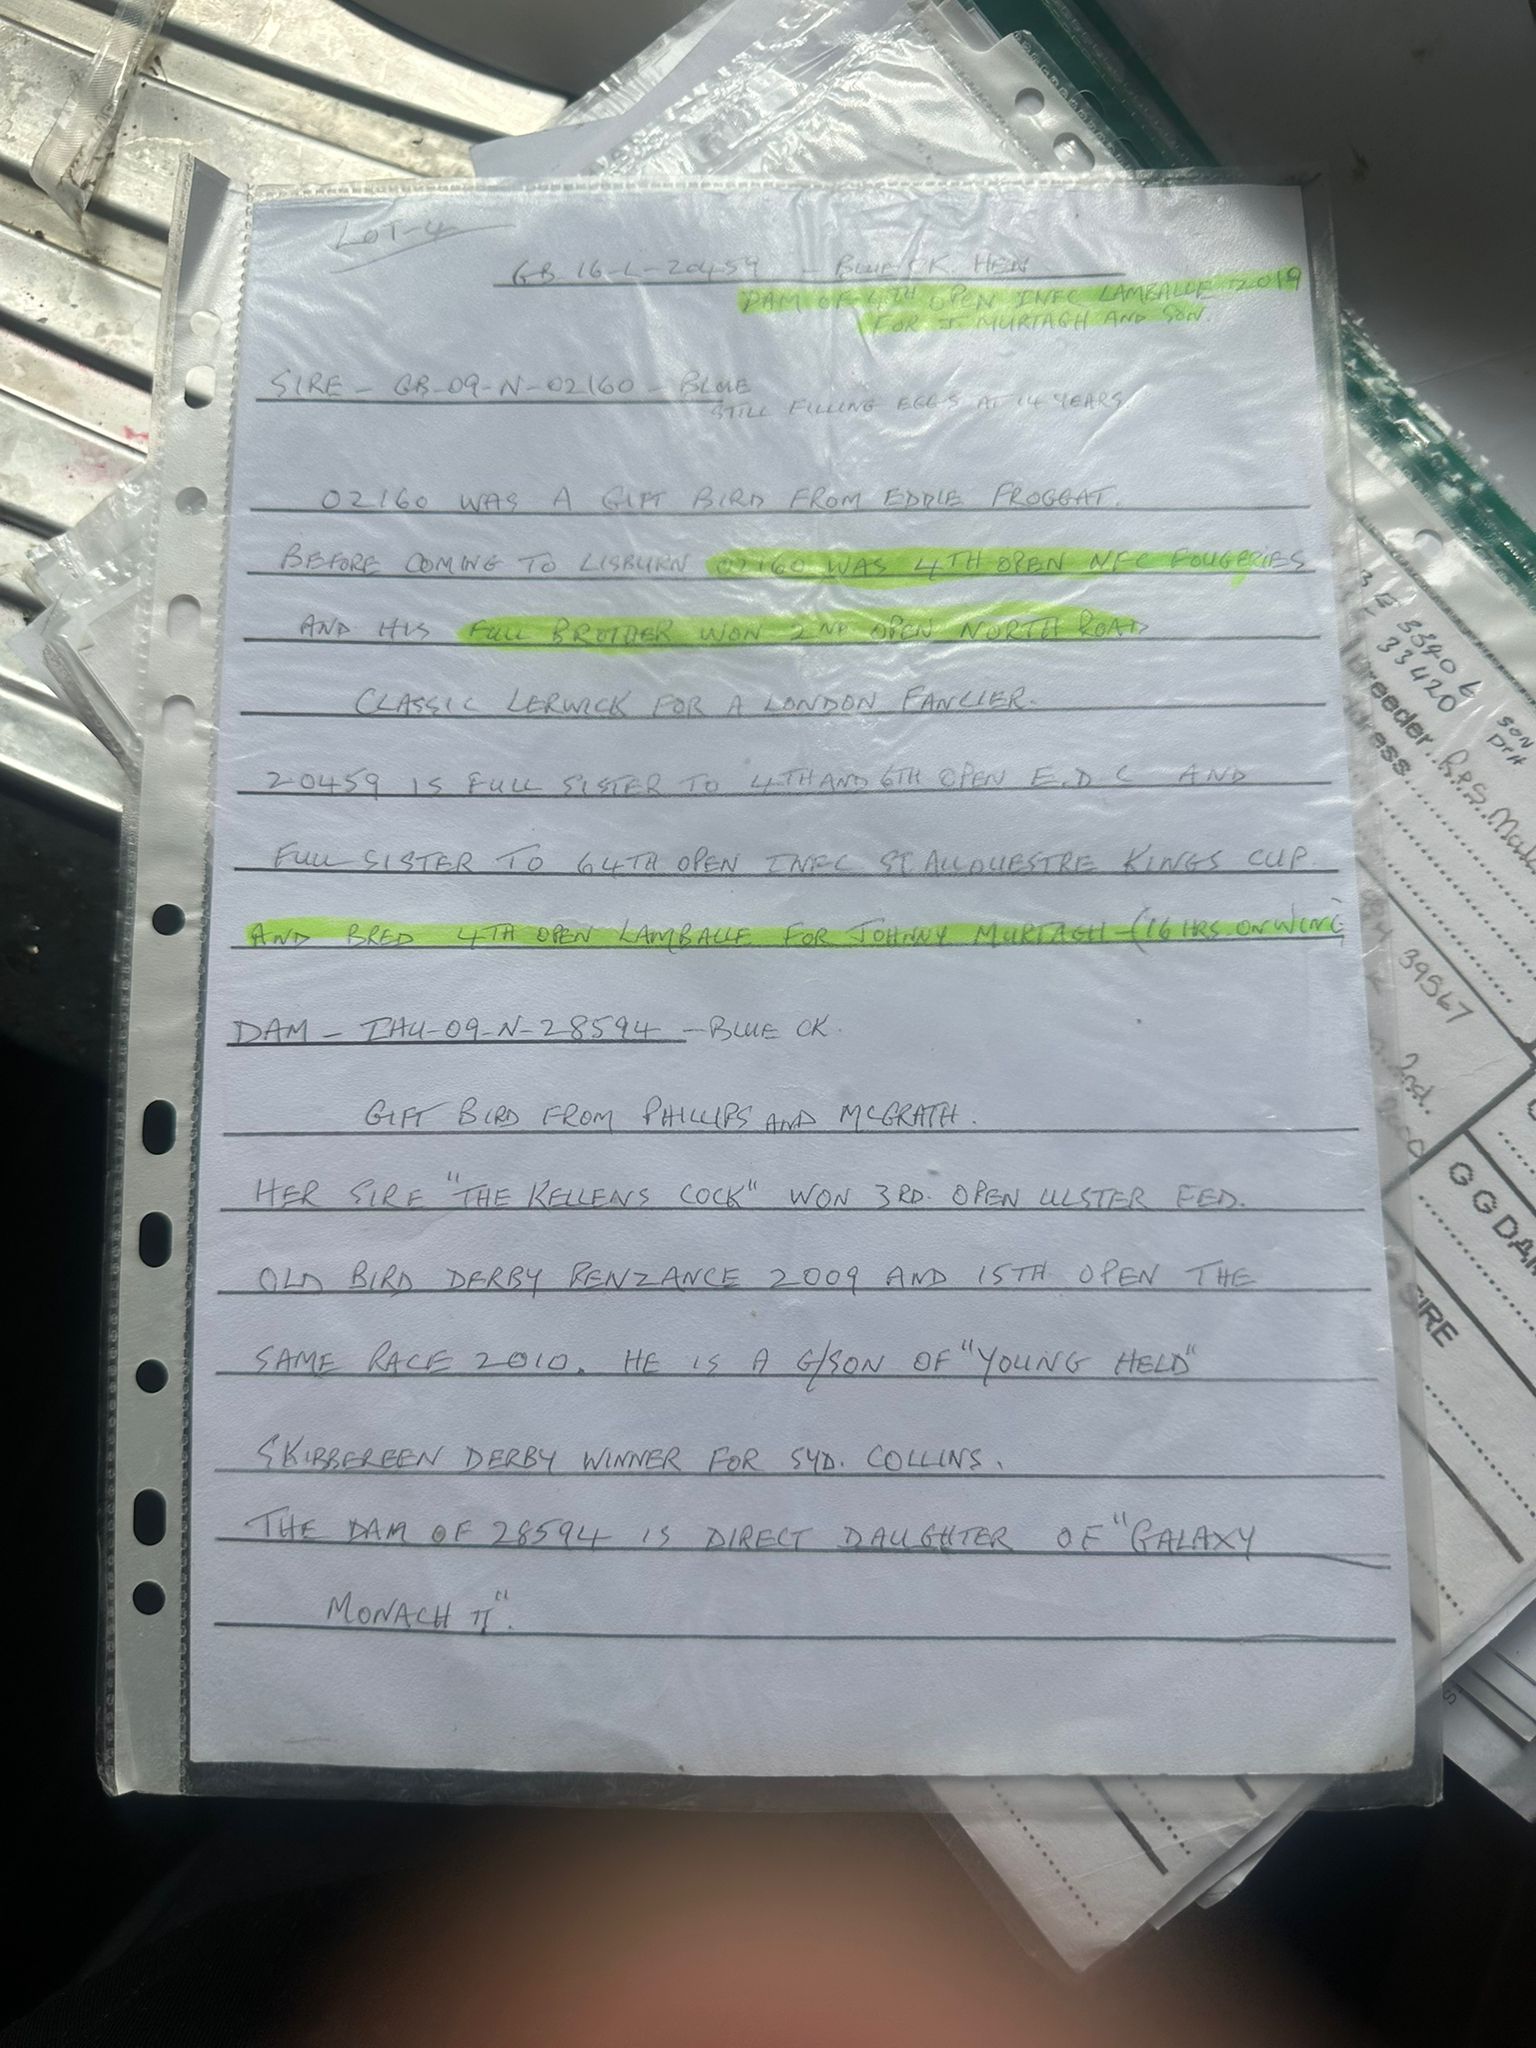 LOT-4
GB 16-L-20459 - BLUE CK HEN
DAM OF 4TH OPEN INFC LAMBALLE 2019
FOR J. MURTAGH AND SON.
SIRE - GB-09-N-02160 - BLUE
STILL FILLING EGGS AT 14 YEARS.
02160 WAS A GIFT BIRD FROM EDDIE FROGGAT.
BEFORE COMING TO LISBURN 02160 WAS 4TH OPEN NFC FOUGERIES
AND HIS FULL BROTHER WON 2ND OPEN NORTH ROAD
CLASSIC LERWICK FOR A LONDON FANCIER.
20459 IS FULL SISTER TO 4TH AND 6TH OPEN E.D.C AND
FULL SISTER TO 64TH OPEN INFC ST. ALLOUESTRE KINGS CUP.
AND BRED 4TH OPEN LAMBALLE FOR JOHNNY MURTAGH - (16 HRS. ON WING
DAM - IHU-09-N-28594 - BLUE CK.
GIFT BIRD FROM PHILLIPS AND MCGRATH.
HER SIRE "THE KELLENS COCK" WON 3RD. OPEN ULSTER FED.
OLD BIRD DERBY PENZANCE 2009 AND 15TH OPEN THE
SAME RACE 2010. HE IS A G/SON OF "YOUNG HELD"
SKIBBEREEN DERBY WINNER FOR SYD. COLLINS.
THE DAM OF 28594 IS DIRECT DAUGHTER OF "GALAXY
MONACH II".
33406 SON
33420 DTR
Breeder..R.P.S.
39567
2nd.
G G DAM
SIRE